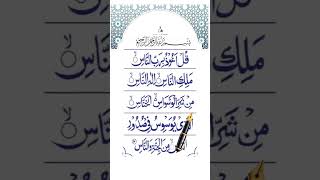 بِسْمِ اللَّهِ الرَّحْمَٰنِ الرَّحِيمِ
قُلْ أَعُوذُ بِرَبِّ النَّاسِ
مَلِكِ النَّاسِ إِلَٰهِ النَّاسِ
مِنْ شَرِّ الْوَسْوَاسِ الْخَنَّاسِ
يُوَسْوِسُ فِي صُدُورِ
مِنَ الْجِنَّةِ وَالنَّاسِ